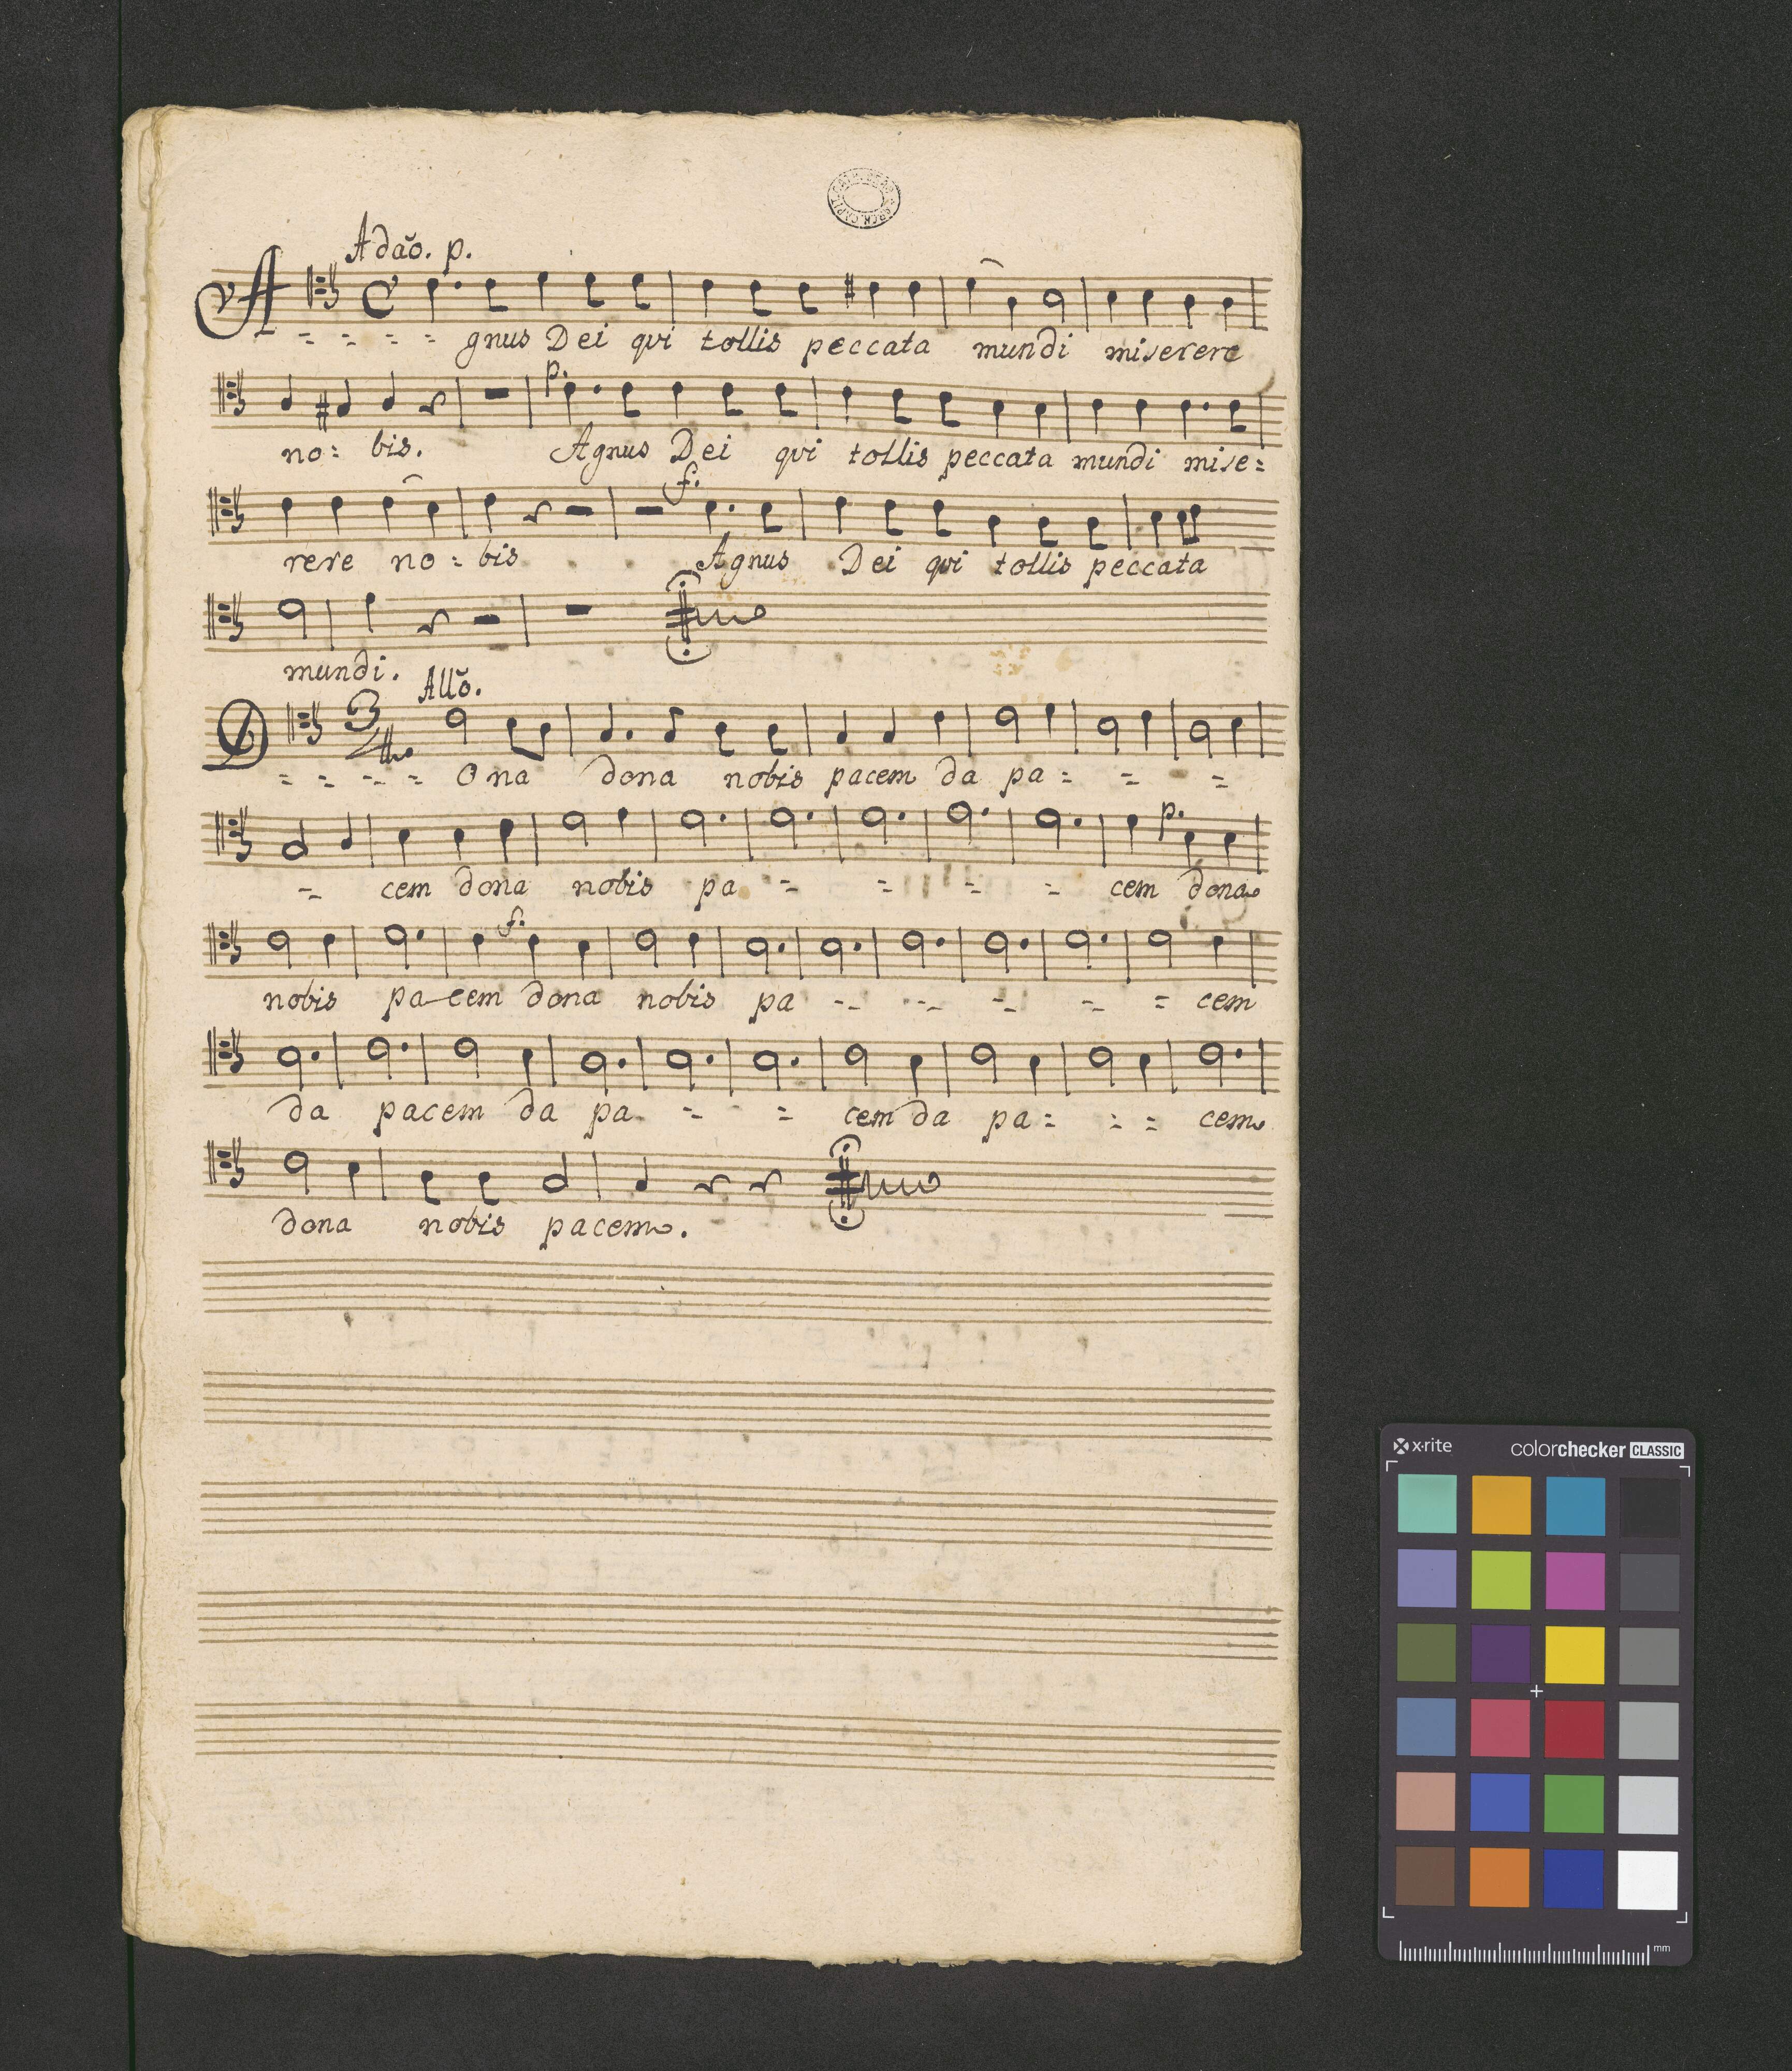 Adão. p.
A - - - - gnus Dei qui tollis peccata mundi miserere
p.
no: bis. Agnus Dei qui tollis peccata mundi mise=
f.
rere no: bis Agnus Dei qui tollis peccata
mundi.
Allõ.
3/4
D - - - = Ona dona nobis pacem da pa = = =
p.
= cem dona nobis pa = = = = cem dona
f.
nobis pa-cem dona nobis pa -- -- -- -- = cem
da pacem da pa - = cem da pa = : = cem
dona nobis pacem.
x·rite colorchecker CLASSIC
mm